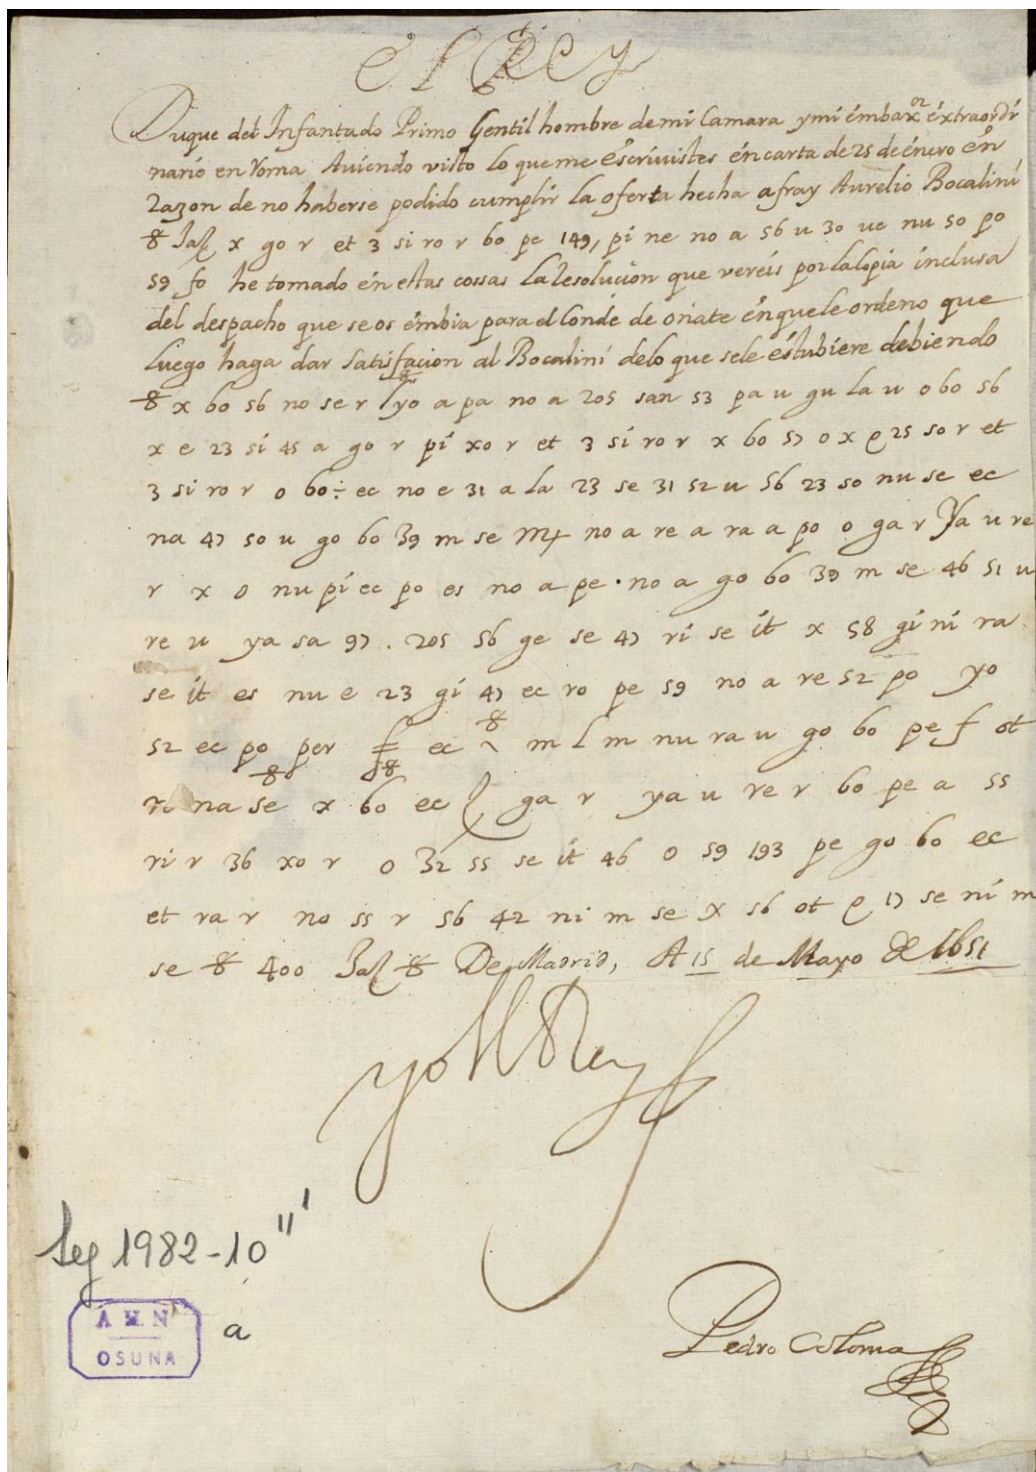 El Rey
Duque del Infantado Primo Gentil hombre de mi Camara y mi émbax.or éxtraordi
nario en Roma Aviendo visto lo que me éscrivistes én carta de 25 de énero én
Razon de no haberse podido cumplir la oferta hecha a fray Aurelio Bocalini
x go r et 3 si ro r bo pe 149, pi ne no a 56 u 30 ue nu so po
59 fo he tomado én estas cossas la Resolucion que vereis por la Copia inclusa
del despacho que se os émbia para el Conde de oñate én que le ordeno que
luego haga dar satisfacion al Bocalini de lo que se le éstubiere debiendo
x bo 56 no se r yo a pa no a 205 san 53 pa u gu la u o bo 56
x e 23 si 45 a go r pi xo r et 3 si ro r x bo 57 o x e 25 so r et
3 si ro r o bo ec no e 31 a la 23 se 31 52 u 56 23 so nu se ec
na 47 so u go bo 39 m se no a re a ra a po o ga r ya u re
r x o nu pi ec po es no a pe no a go bo 39 m se 46 51 u
re u ya sa 97 . 205 56 ge se 47 ri se it x 58 gi ni ra
se it es nu e 23 gi 47 ec ro pe 59 no a re 52 po yo
52 ec po per ec m l m nu ra u go bo pe f ot
na se x bo ec ga r ya u re r bo pe a 55
ri r 36 xo r o 32 55 se it 46 o 59 193 pe go bo ec
et ra r no 55 r 56 42 ni m se x 56 ot e 17 se ni m
se 400 De Madrid, A 15 de Mayo de 1651
yo el Rey
Leg 1982-10"
a
A H N
OSUNA
Pedro Coloma